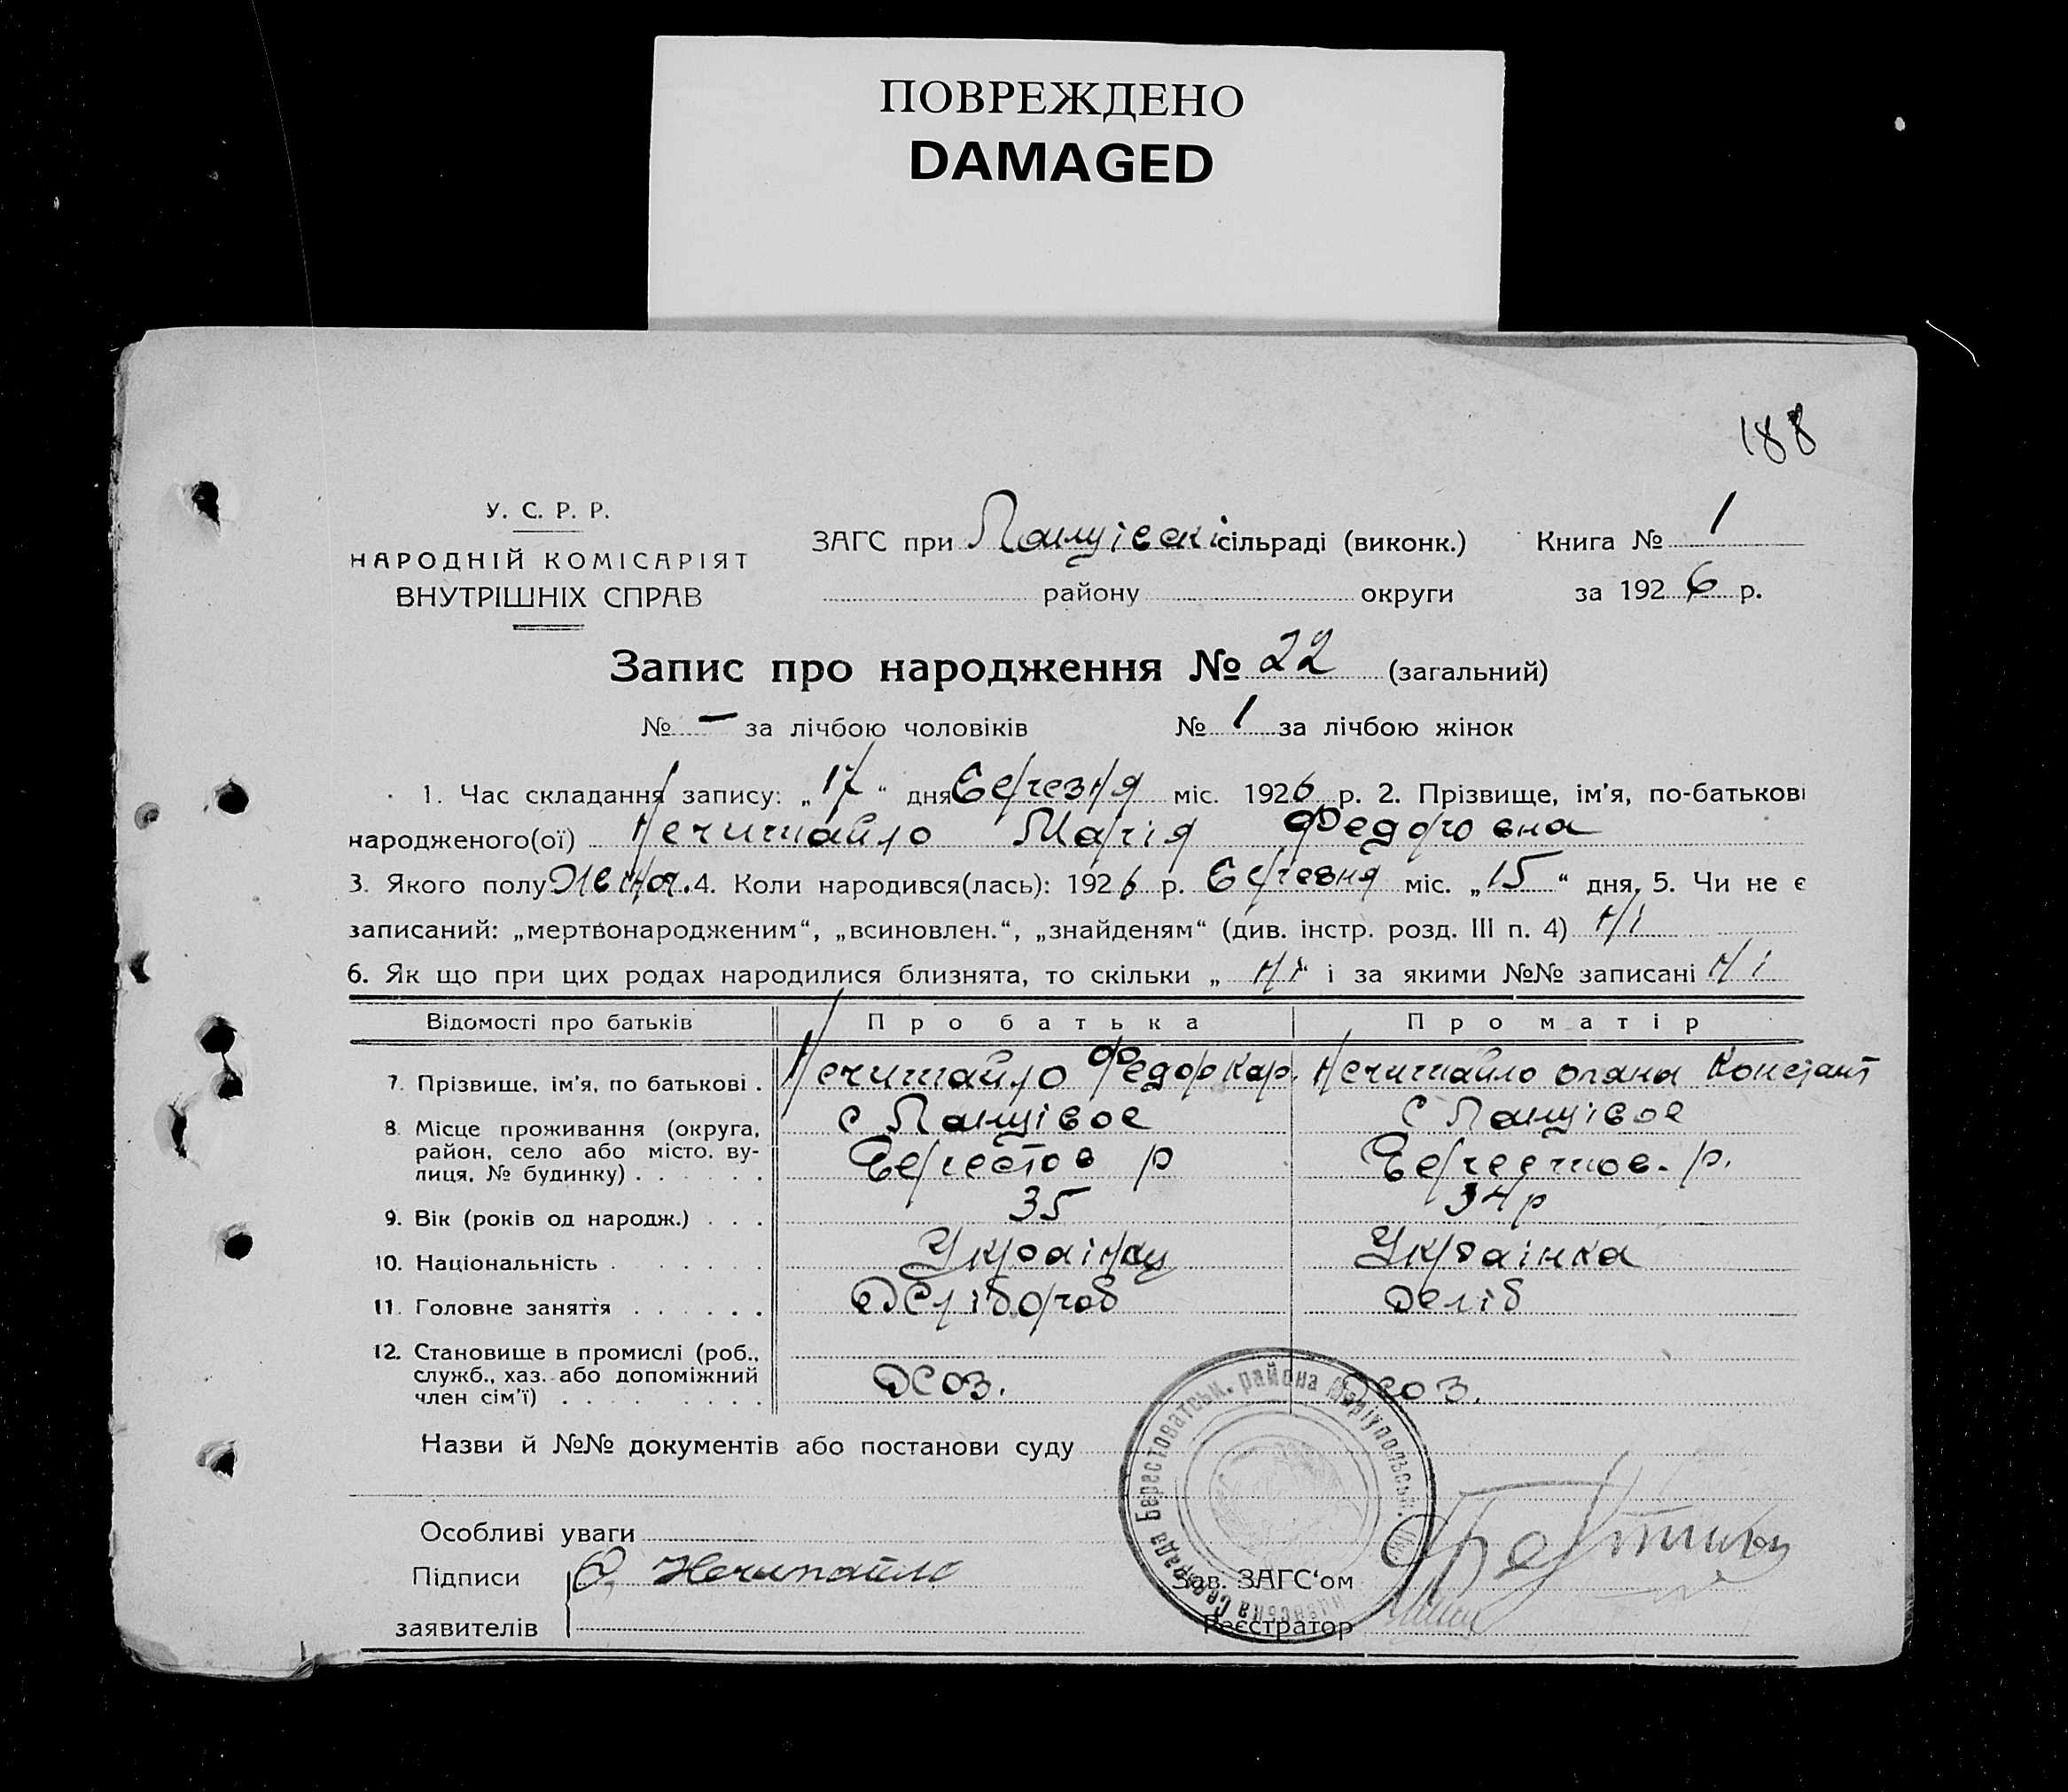 ПОВРЕЖДЕНО
DAMAGED
188
У. С. Р. Р.
НАРОДНІЙ КОМІСАРІЯТ
ВНУТРІШНІХ СПРАВ
ЗАГС при сільраді (виконк.) Книга № 1
району округи за 1926 р.
Запис про народження № 22 (загальний)
№ – за лічбою чоловіків № 1 за лічбою жінок
1. Час складання запису: „17“ дня Березня міс. 1926 р. 2. Прізвище, ім'я, по-батькові
народженого(ої) Нечипайло Марія Федоровна
3. Якого полу Жіноч. 4. Коли народився(лась): 1926 р. Березня міс. „15“ дня, 5. Чи не є
записаний: „мертвонародженим“, „всиновлен.“, „знайденям“ (див. інстр. розд. III п. 4) Ні
6. Як що при цих родах народилися близнята, то скільки „Ні“ і за якими №№ записані Ні
Відомості про батьків Про батька Про матір
7. Прізвище, ім'я, по батькові . Нечипайло Федор Кар. Нечипайло Констант
8. Місце проживання (округа,
район, село або місто, ву-
лиця, № будинку) . . . . . . Берестов р
9. Вік (років од народж.) . . . 35 34 р
10. Національність . . . . . . . Українец Українка
11. Головне заняття . . . . . . Хлібороб Хліб
12. Становище в промислі (роб.,
служб., хаз. або допоміжний
член сім'ї) . . . . . . . . . Хоз. Хоз.
Назви й №№ документів або постанови суду
Особливі уваги
Підписи Нечипайло
заявителів
Зав. ЗАГС'ом
Реєстратор
Сельрада Берестоватськ. района Маріупольськ.